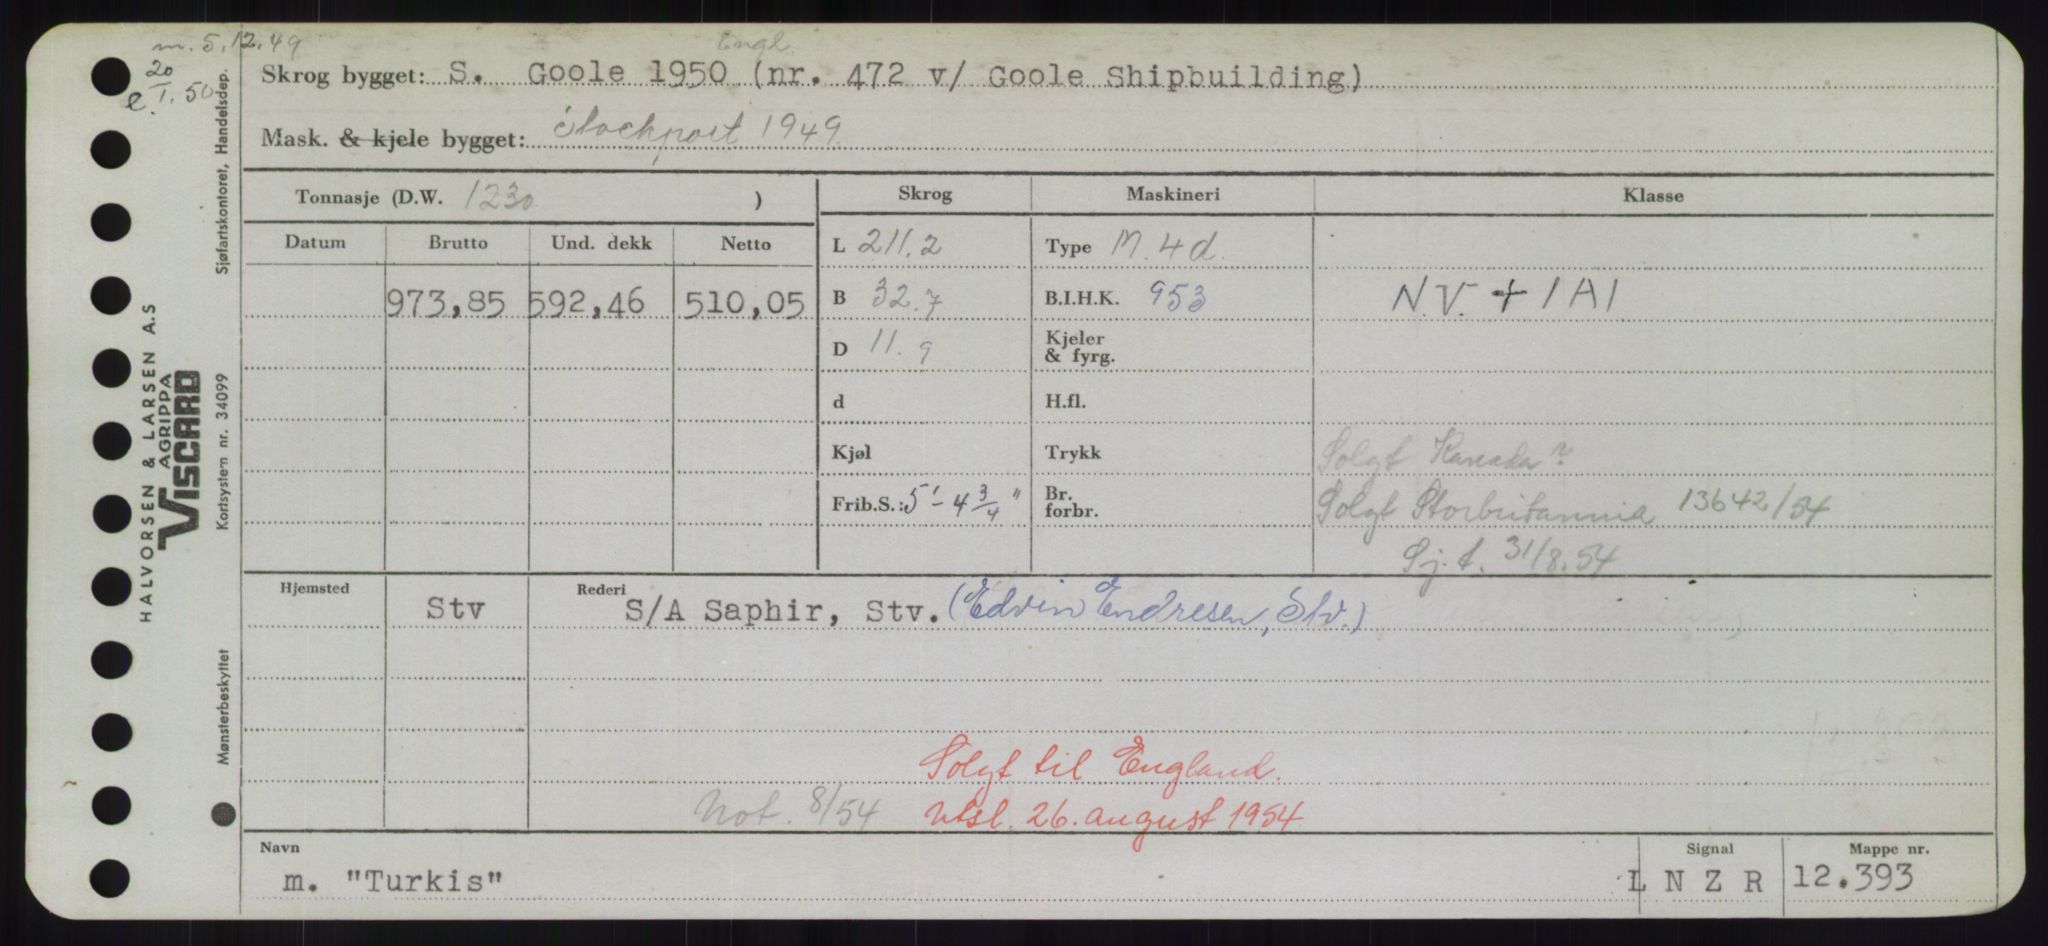 m. 5.12.49
20/1.50
e.
Engl.
Skrog bygget: S. Goole 1950 (nr. 472 v/ Goole Shipbuilding)
Mask. & kjele bygget: Stockport 1949
Tonnasje (D.W. 1230 )
Skrog Maskineri Klasse
Datum Brutto Und. dekk Netto
L 211.2 Type M. 4 d.
973,85 592,46 510,05
B 32.7 B.I.H.K. 953 N.V. + 1A1
D 11.9 Kjeler & fyrg.
d H.fl.
Kjøl Trykk Solgt Kanada?
Frib.S.: 5'-4 3/4" Br. forbr. Solgt Storbritannia 13642/54
Sj.t. 31/8.54
Hjemsted Rederi
Stv S/A Saphir, Stv. (Edvin Endresen, Stv.)
Solgt til England.
Not. 8/54 utsl. 26. august 1954
Navn Signal Mappe nr.
m. "Turkis" L N Z R 12.393
HALVORSEN & LARSEN A.S
AGRIPPA
VISCARD
Sjøfartskontoret, Handelsdep.
Kortsystem nr. 34099
Mønsterbeskyttet